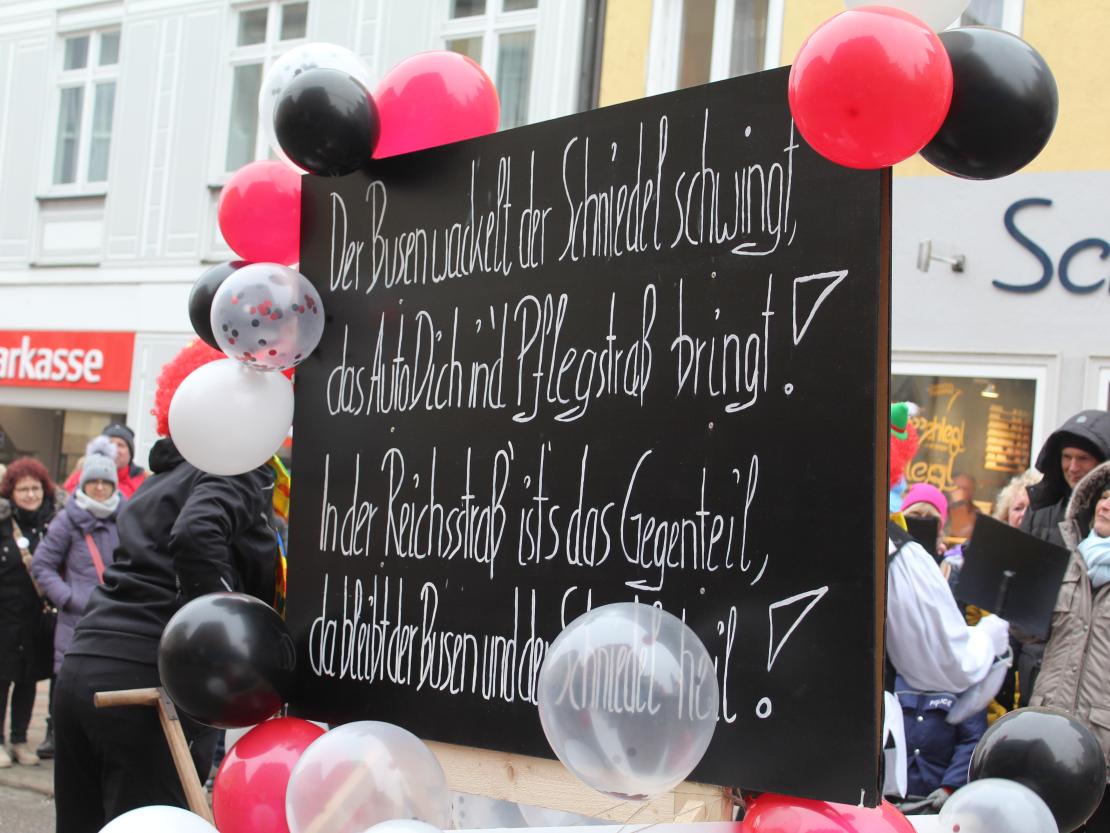 Der Busen wackelt der Schniedel schwingt,
das Auto Dich in'd Pflegstraß bringt!
In der Reichsstraß' ist's das Gegenteil,
da bleibt der Busen und der Schniedel heil!
arkasse
Sc